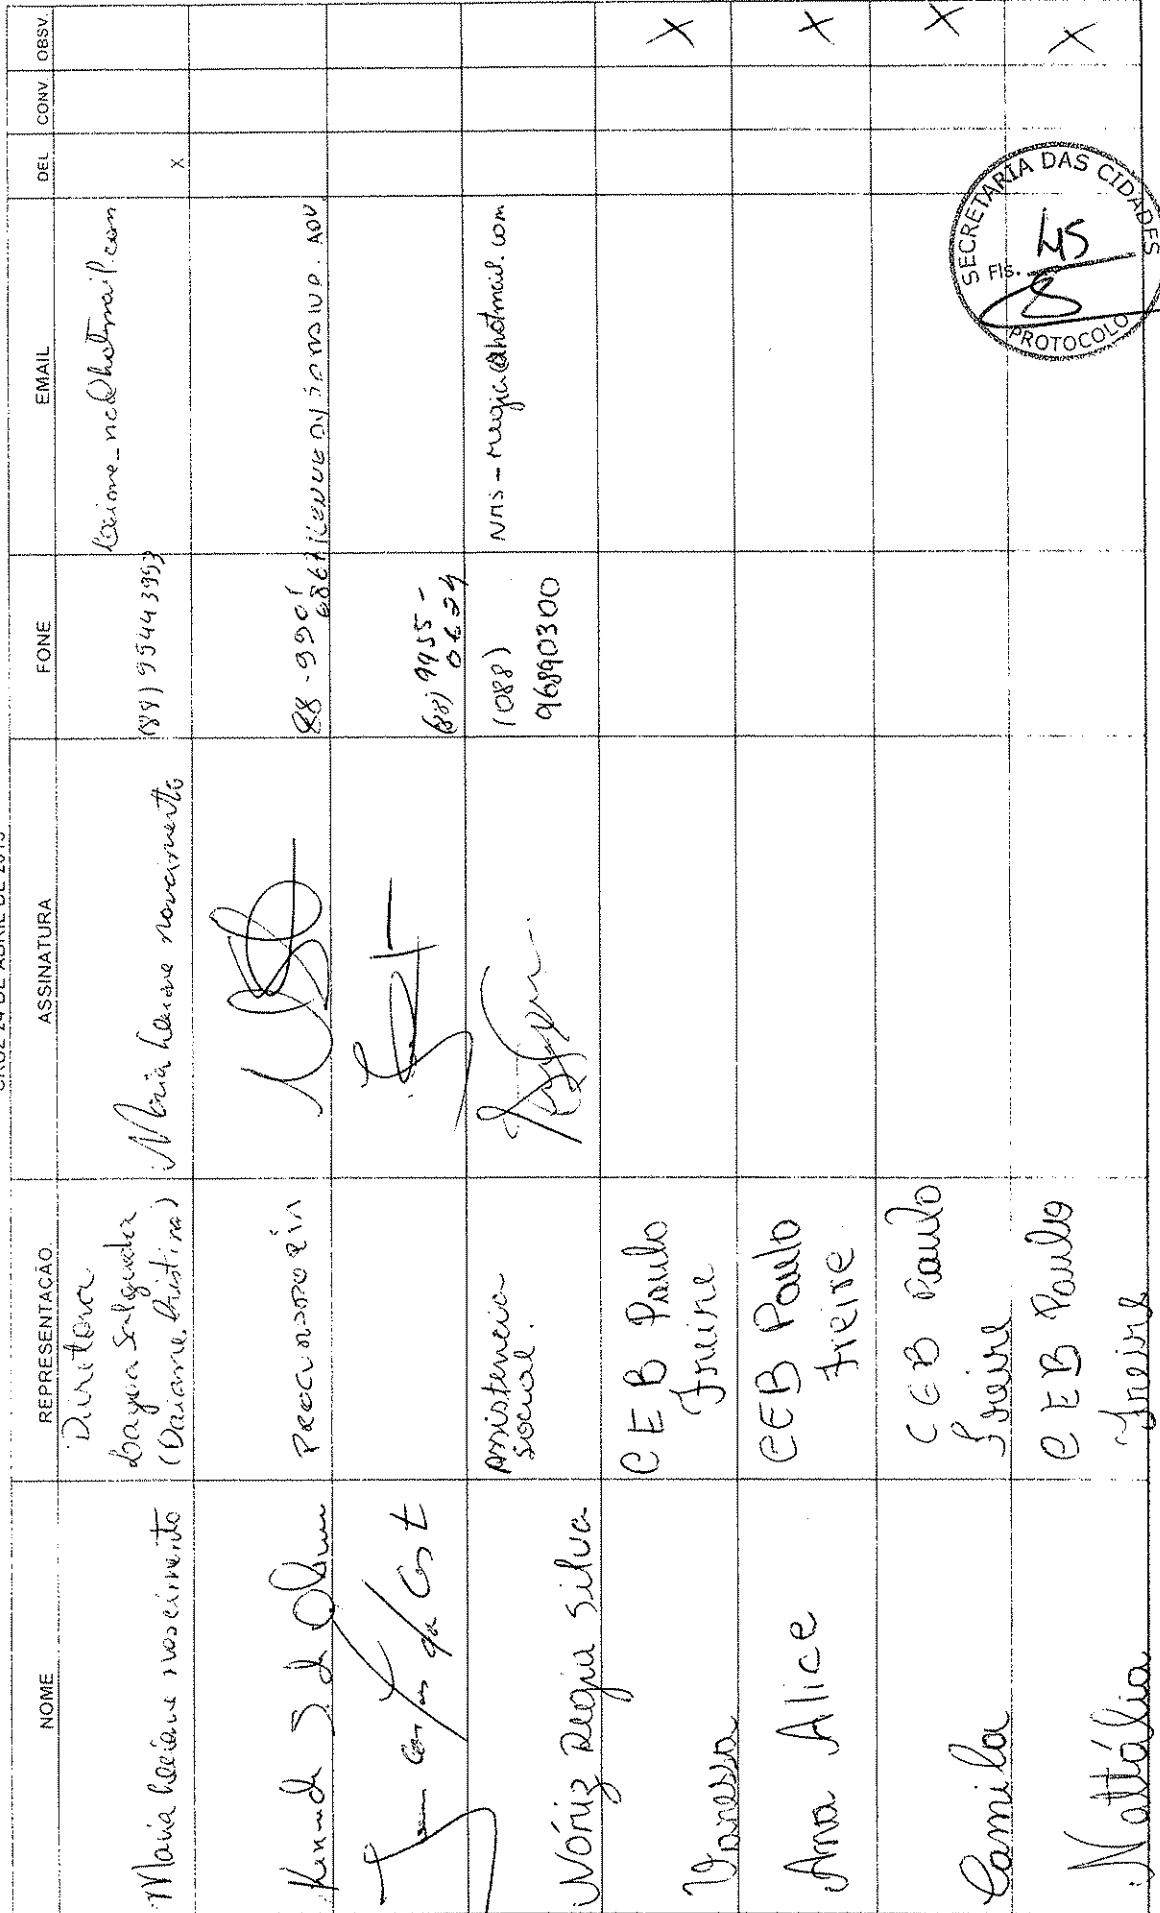 CRUZ 24 DE ABRIL DE 2013
NOME REPRESENTAÇÃO. ASSINATURA FONE EMAIL DEL CONV. OBSV.
Maria leiane nascimento
Diretora
(Daiane Cristina)
Maria leiane nascimento
(88) 99443993
leiane_nc@hotmail.com
x
88-9901
(88) 9955-
0624
Nóriz Regia Silva
Assistencia
social.
(088)
96890300
nrs-regia@hotmail.com
Vanessa
CEB Paulo
Freire
X
Ana Alice
CEB Paulo
Freire
X
Camila
CEB Paulo
Freire
X
Nattália
CEB Paulo
Freire
X
SECRETARIA DAS CIDADES
Fls.
PROTOCOLO